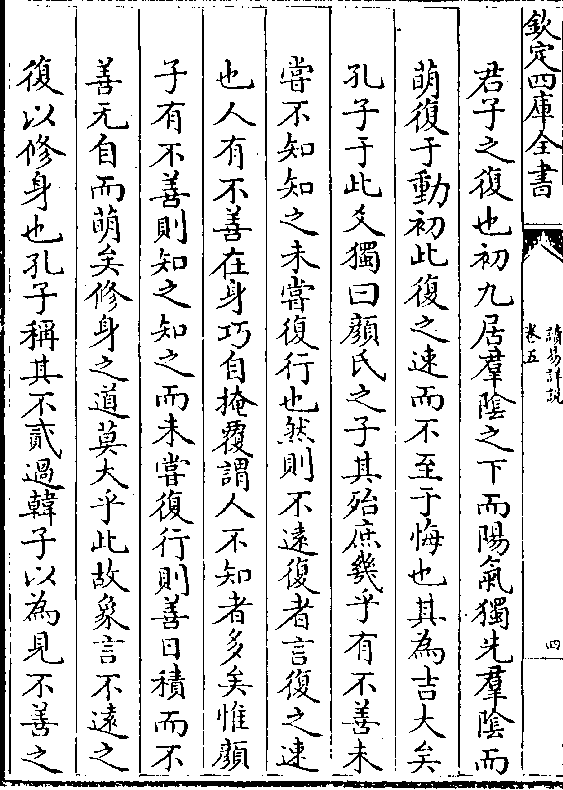 欽定四庫全書
讀易詳說
卷五
四
君子之復也初九居羣陰之下而陽氣獨先羣陰而
萌復于動初此復之速而不至于悔也其為吉大矣
孔子于此爻獨曰顔氏之子其殆庶幾乎有不善未
嘗不知知之未嘗復行也然則不遠復者言復之速
也人有不善在身巧自掩覆謂人不知者多矣惟顔
子有不善則知之知之而未嘗復行則善日積而不
善无自而萌矣修身之道莫大乎此故象言不遠之
復以修身也孔子稱其不貳過韓子以為見不善之